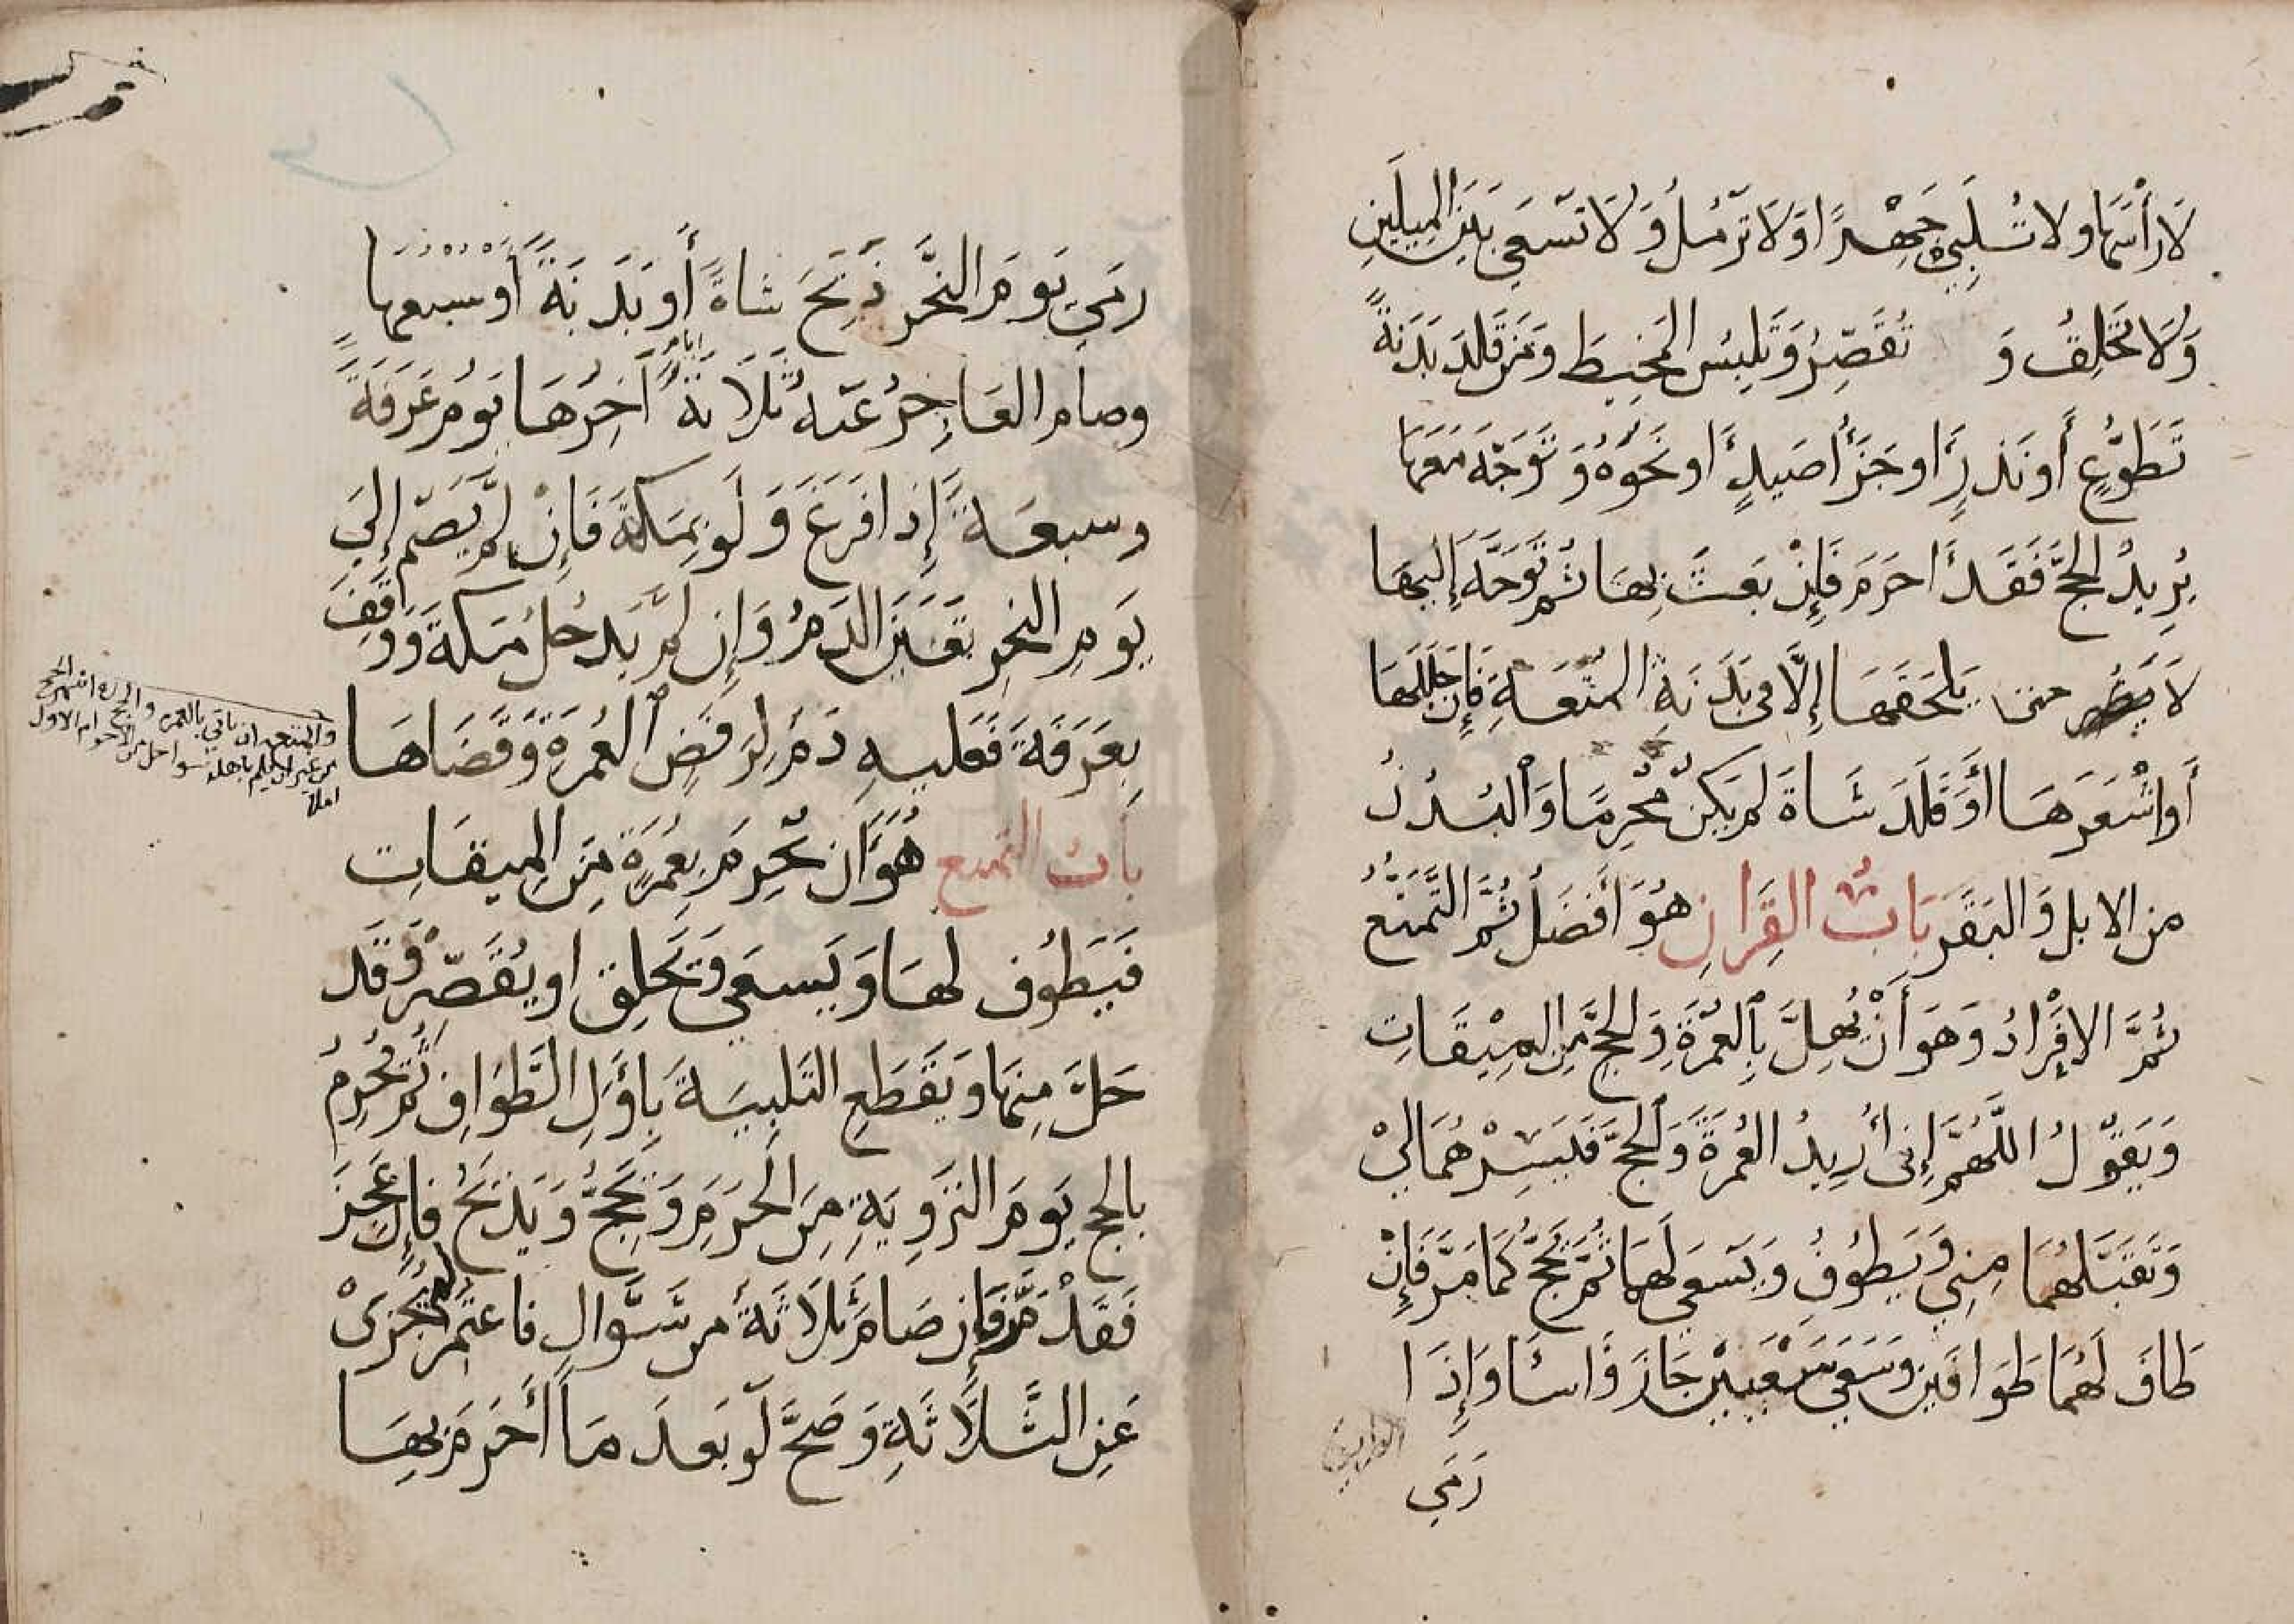 لَا رَأْسَهَا ولا تُلَبِّي جَهْرًا وَلَا تَرْمُلُ وَلَا تَسْعَى بَيْنَ الْمِيلَيْنِ
وَلَا تَحْلِقُ وَ تُقَصِّرُ وَتَلْبِسُ المَخِيطَ وَمَنْ قَلَّدَ بَدَنَةً
تَطَوُّعٍ أَو نَذْرٍ او جَزَاءَ صَيْدٍ او نَحْوَهُ وَتَوَجَّهَ مَعَهَا
يُرِيدُ الحَجَّ فَقَد احرَمَ فَإِنْ بَعَثَ بِهَا ثُمَّ تَوَجَّهَ إِلَيْهَا
لَا حتى يَلْحَقَهَا إِلَّا فى بَدَنَةِ المُتْعَةِ فَإِن جَلَّلَهَا
أَو اشْعَرَهَا أَوْ قَلَّدَ شَاةً لم يَكُنْ مُحْرِمًا وَالْبُدْنُ
من الابل وَالبَقَر بَابُ القِرَانِ هُوَ أَفْضَلُ ثُمَّ التَّمَتُّعُ
ثُمَّ الافْرَادُ وَهوَ أَنْ يُهِلَّ بِالْعُمْرَةِ وَالحَجِّ مِنَ المِيْقَاتِ
وَيَقُولُ اللَّهُمَّ إِنى أُرِيدُ العُمْرَةَ وَالحَجَّ فَيَسِّرْهُمَا لِيْ
وَتَقَبَّلْهُمَا مِنِّي وَيَطُوفُ وَيَسْعَى لَهَا ثُمَّ يَحُجُّ كَمَا مَرَّ فَإِنْ
طَافَ لَهُمَا طَوَافَيْنِ وَسَعَى سَعْيَيْنِ جَازَ وَاسَا وَإِذَا
رَمَي
رمَي يَومَ النَّحْرِ ذَبَحَ شاةً أَو بَدَنَةً أَو سبعها
وصام العَاجِزُ عَنه ثَلَاثَةَ ايام آخِرُهَا يَومُ عَرَفَةَ
وسبعَةً إِذا فَرَغَ وَلَو بِمَكَّةَ فَإِنْ لَم يَصُم إِلَى
يَومِ النحرِ تَعَيَّنَ الدَمُ وَإِن لَم يَدخُل مَكةَ وَوَقَفَ
بِعَرَفَةَ فَعَلَيهِ دَمٌ لِرَفضِ العُمرَةِ وَقَضَاهَا
بَابُ التمتع هُوَ أَن يُحرِمَ بِعُمرَةٍ مِنَ المِيقَاتِ
فَيَطُوف لهَا وَيَسعَى وَيَحلِق او يُقَصِّر وَقَد
حَلَّ مِنهَا وَيَقطَعِ التَلبِيَةَ بِأَوَّلِ الطَّوَافِ ثُم يُحْرِمُ
بالحج يَومَ التَروِيَةِ مِنَ الحَرَمِ وَيَحُجُّ وَيَذبَحُ فَإِن عَجَزَ
فَقَدْ مَرَّ فَإِن صَامَ ثَلَاثَةً من شَوَّالٍ فاعتَمَرَ لم يُجزئْ
عَنِ الثَّلَاثَةِ وَصَحَّ لَو بَعدَ مَا أَحرَمَ بِهَا